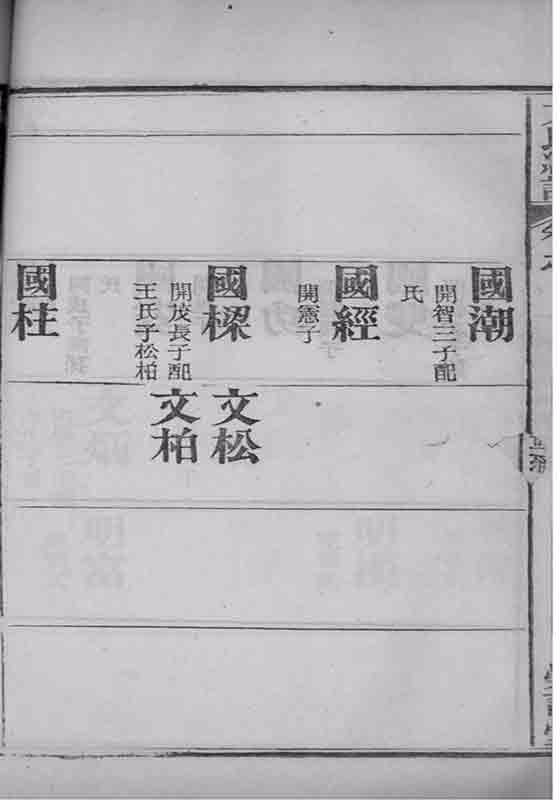 國潮
開智三子配
氏
國經
開憲子
國樑
開茂長子配
王氏子松柏
文松
文柏
國柱